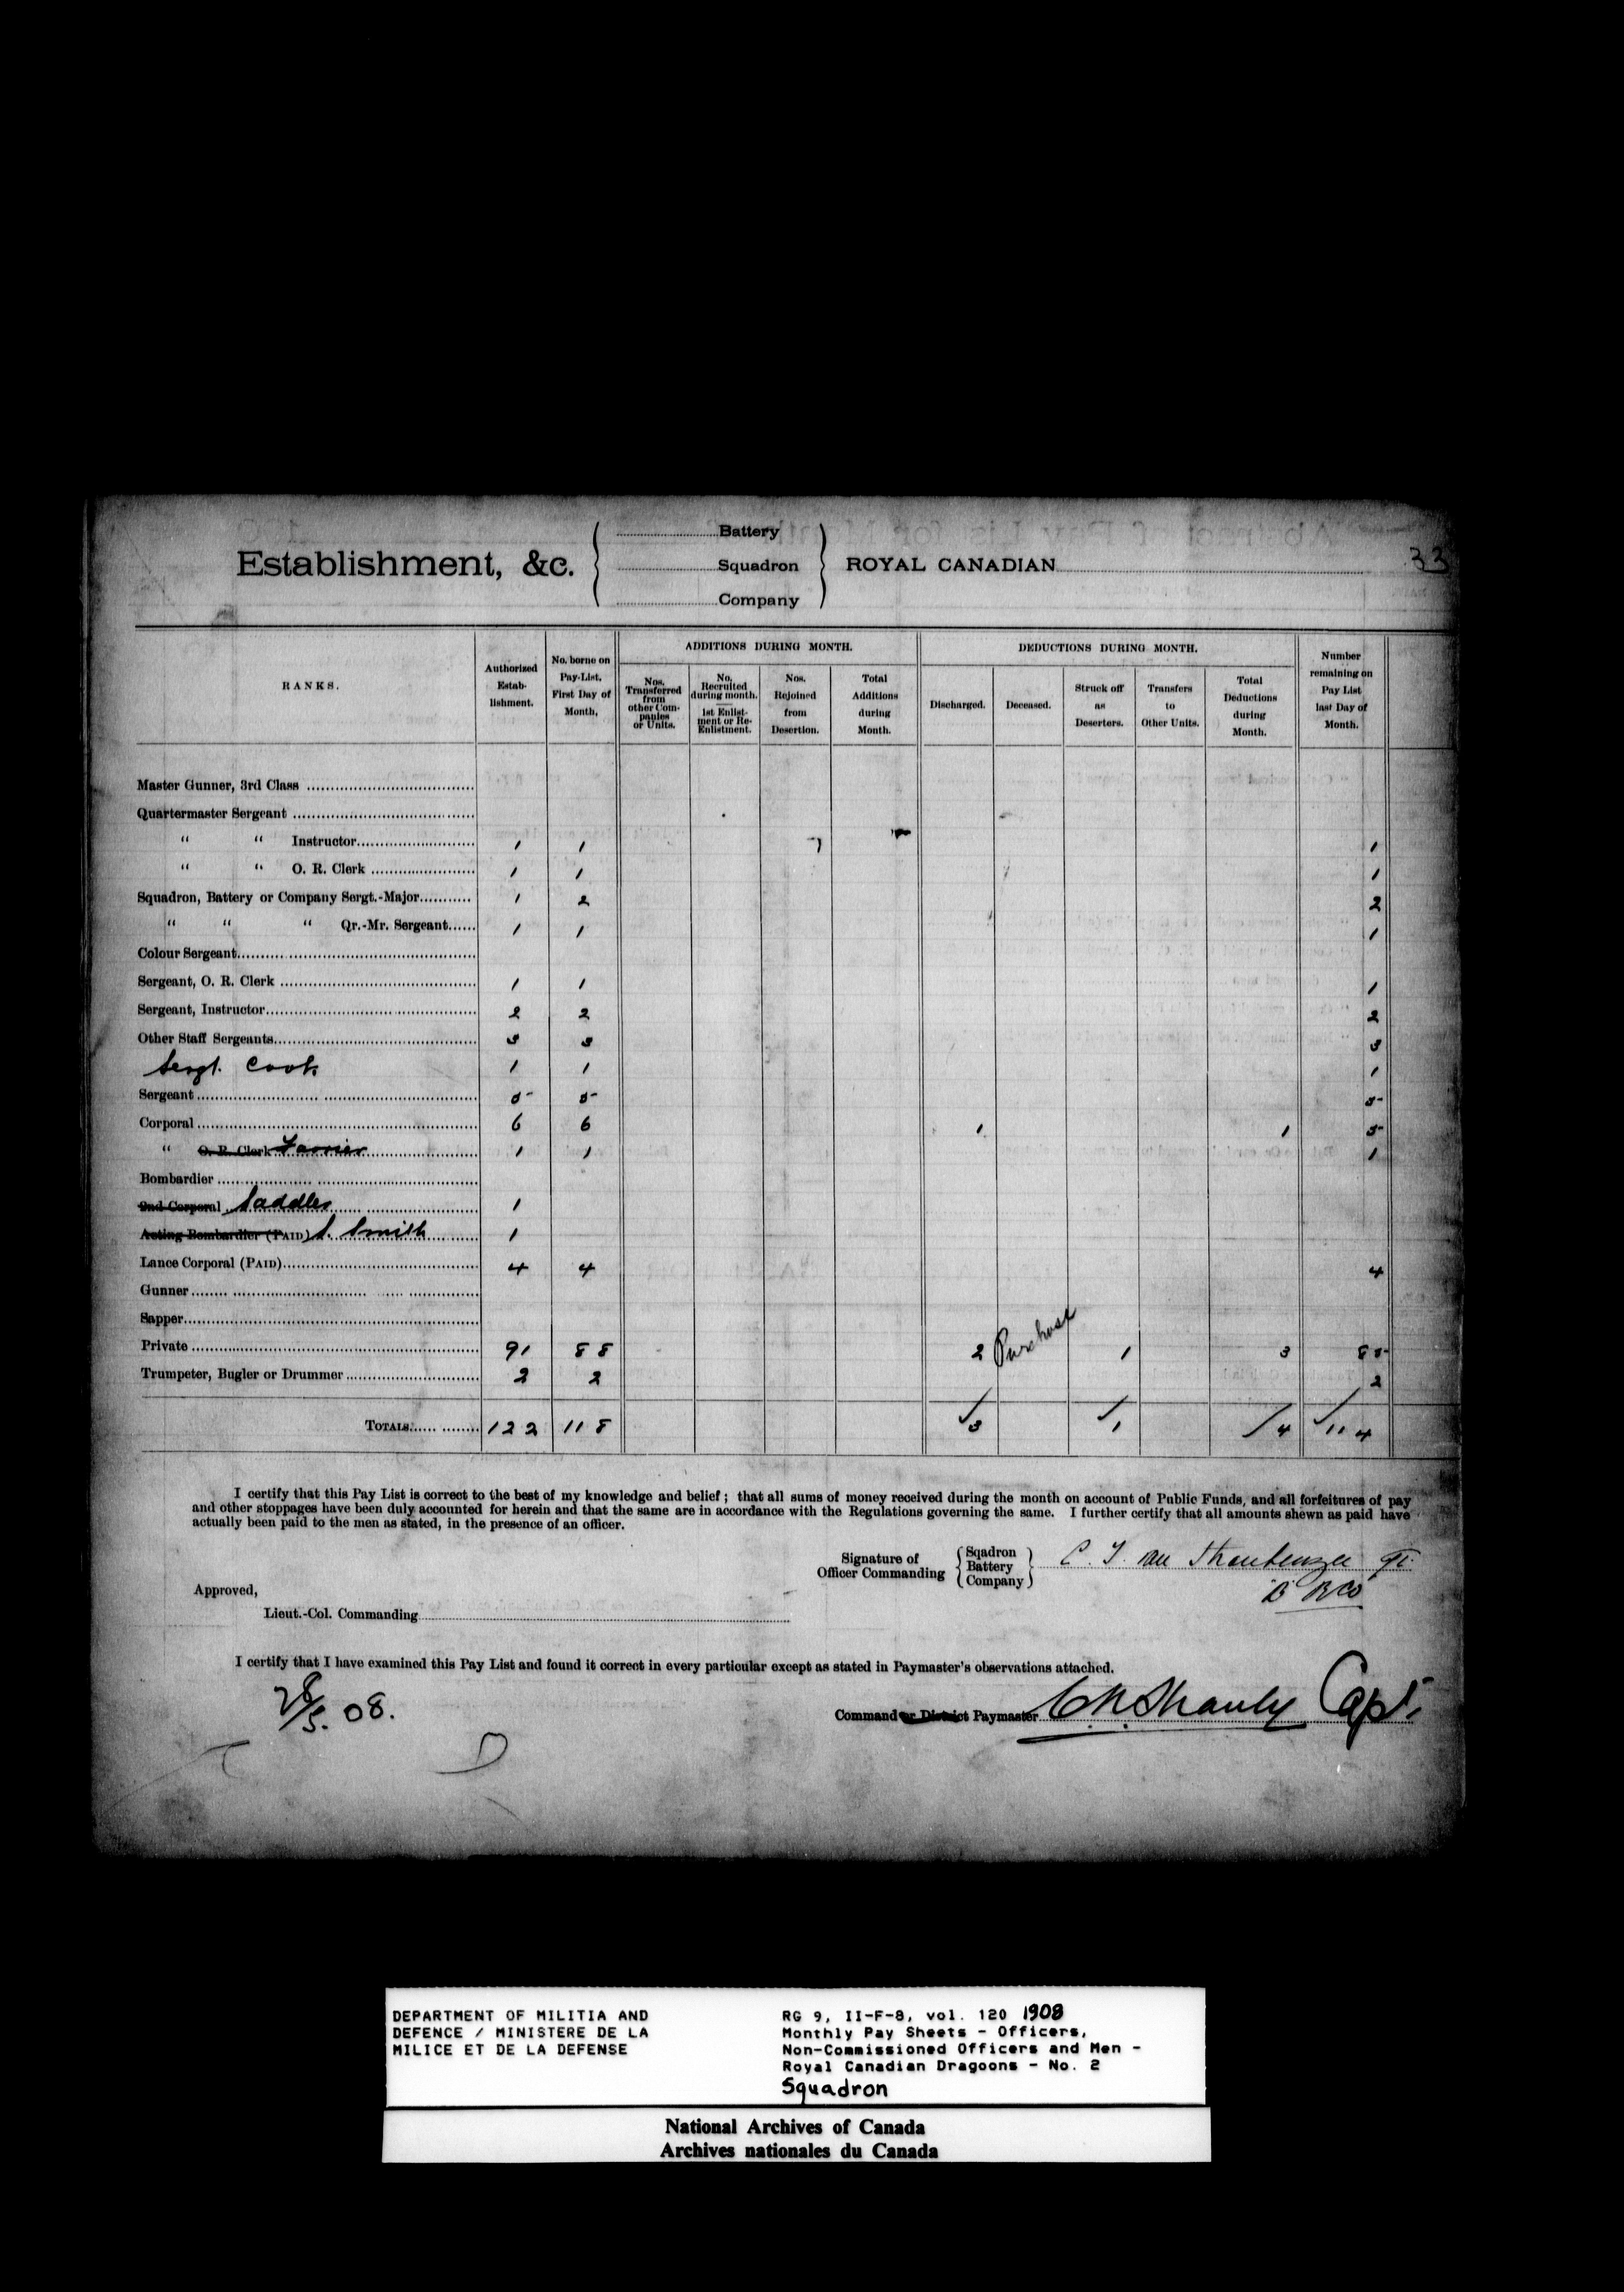 33
Establishment, &c.
Battery
Squadron
Company
ROYAL CANADIAN
RANKS.
Authorized Estab-lishment.
No. borne on Pay-List, First Day of Month,
ADDITIONS DURING MONTH.
Nos. Transferred from other Com-panies or Units.
No. Recruited during month. 1st Enlist-ment or Re-Enlistment.
Nos. Rejoined from Desertion.
Total Additions during Month.
DEDUCTIONS DURING MONTH.
Discharged.
Deceased.
Struck off as Deserters.
Transfers to Other Units.
Total Deductions during Month.
Number remaining on Pay List last Day of Month.
Master Gunner, 3rd Class
Quartermaster Sergeant
" " Instructor 1 1 1
" " O. R. Clerk 1 1 1
Squadron, Battery or Company Sergt.-Major 1 2 2
" " " Qr.-Mr. Sergeant 1 1 1
Colour Sergeant
Sergeant, O. R. Clerk 1 1 1
Sergeant, Instructor 2 2 2
Other Staff Sergeants 3 3 3
Sergt. Cook 1 1 1
Sergeant 5 5 5
Corporal 6 6 1 1 5
" O. R. Clerk Farrier 1 1 1
Bombardier
2nd Corporal Saddler 1
Acting Bombardier (PAID) S. Smith 1
Lance Corporal (PAID) 4 4 4
Gunner
Sapper
Private 91 88 2 Purchase 1 3 85
Trumpeter, Bugler or Drummer 2 2 2
TOTALS 122 118 3 1 4 114
I certify that this Pay List is correct to the best of my knowledge and belief; that all sums of money received during the month on account of Public Funds, and all forfeitures of pay
and other stoppages have been duly accounted for herein and that the same are in accordance with the Regulations governing the same. I further certify that all amounts shewn as paid have
actually been paid to the men as stated, in the presence of an officer.
Signature of Officer Commanding
Sqadron
Battery
Company
C. T. van Straubenzee
Approved,
Lieut.-Col. Commanding
I certify that I have examined this Pay List and found it correct in every particular except as stated in Paymaster's observations attached.
28/5.08.
Command or District Paymaster C.N. Shanly Capt.
DEPARTMENT OF MILITIA AND
DEFENCE / MINISTERE DE LA
MILICE ET DE LA DEFENSE
RG 9, II-F-8, vol. 120 1908
Monthly Pay Sheets - Officers,
Non-Commissioned Officers and Men -
Royal Canadian Dragoons - No. 2
Squadron
National Archives of Canada
Archives nationales du Canada